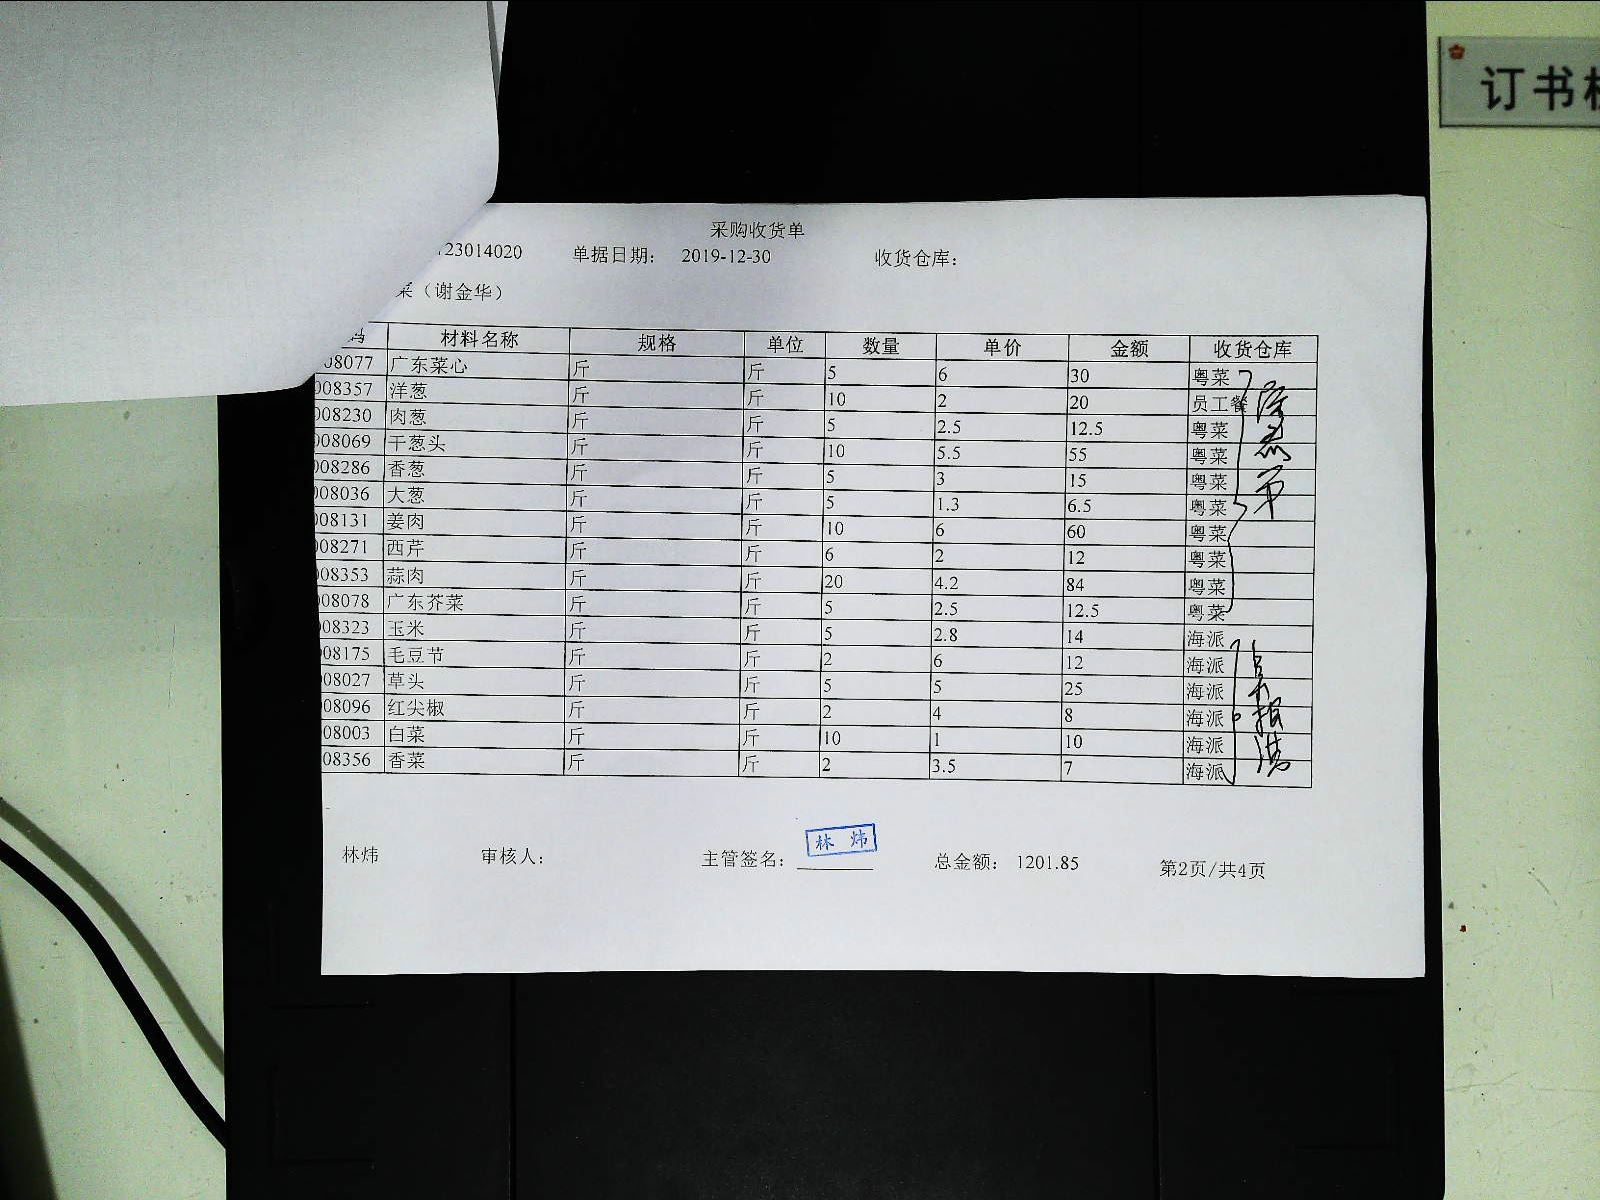 订书
采购收货单
23014020 单据日期： 2019-12-30 收货仓库：
菜（谢金华）
码 材料名称 规格 单位 数量 单价 金额 收货仓库
08077 广东菜心 斤 斤 5 6 30 粤菜
008357 洋葱 斤 斤 10 2 20 员工餐
008230 肉葱 斤 斤 5 2.5 12.5 粤菜
008069 干葱头 斤 斤 10 5.5 55 粤菜
008286 香葱 斤 斤 5 3 15 粤菜
008036 大葱 斤 斤 5 1.3 6.5 粤菜
008131 姜肉 斤 斤 10 6 60 粤菜
008271 西芹 斤 斤 6 2 12 粤菜
008353 蒜肉 斤 斤 20 4.2 84 粤菜
08078 广东芥菜 斤 斤 5 2.5 12.5 粤菜
008323 玉米 斤 斤 5 2.8 14 海派
08175 毛豆节 斤 斤 2 6 12 海派
08027 草头 斤 斤 5 5 25 海派
08096 红尖椒 斤 斤 2 4 8 海派
08003 白菜 斤 斤 10 1 10 海派
08356 香菜 斤 斤 2 3.5 7 海派
林炜 审核人： 主管签名： 林 炜 总金额： 1201.85 第2页/共4页